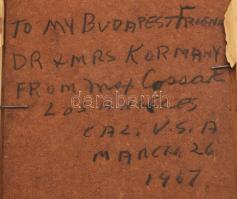 TO MY BUDAPEST FRIEND
DR & MRS KORMANY
FROM Max
LOS ANGELES
CAL. U.S.A
MARCH. 26
1967
darabanth